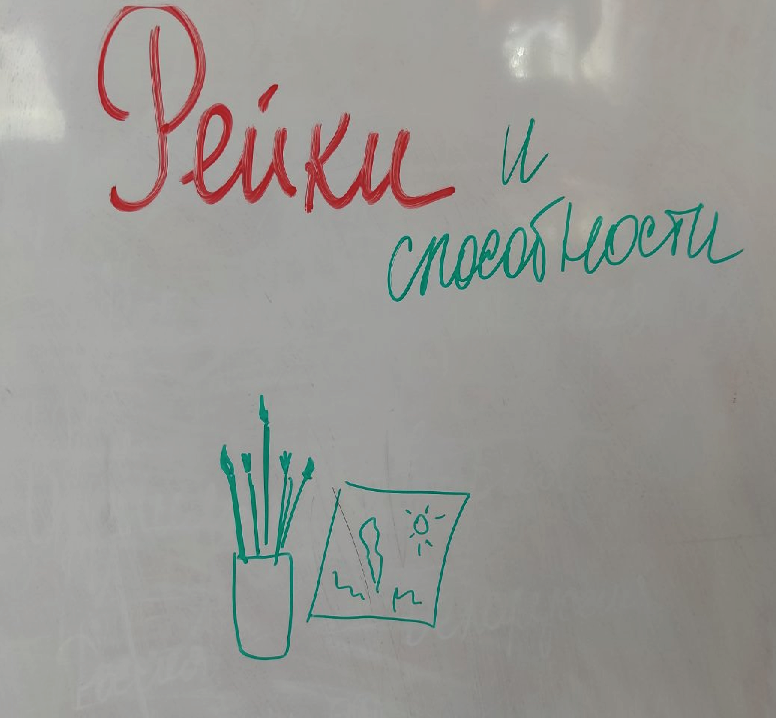 Рейки
и
способности